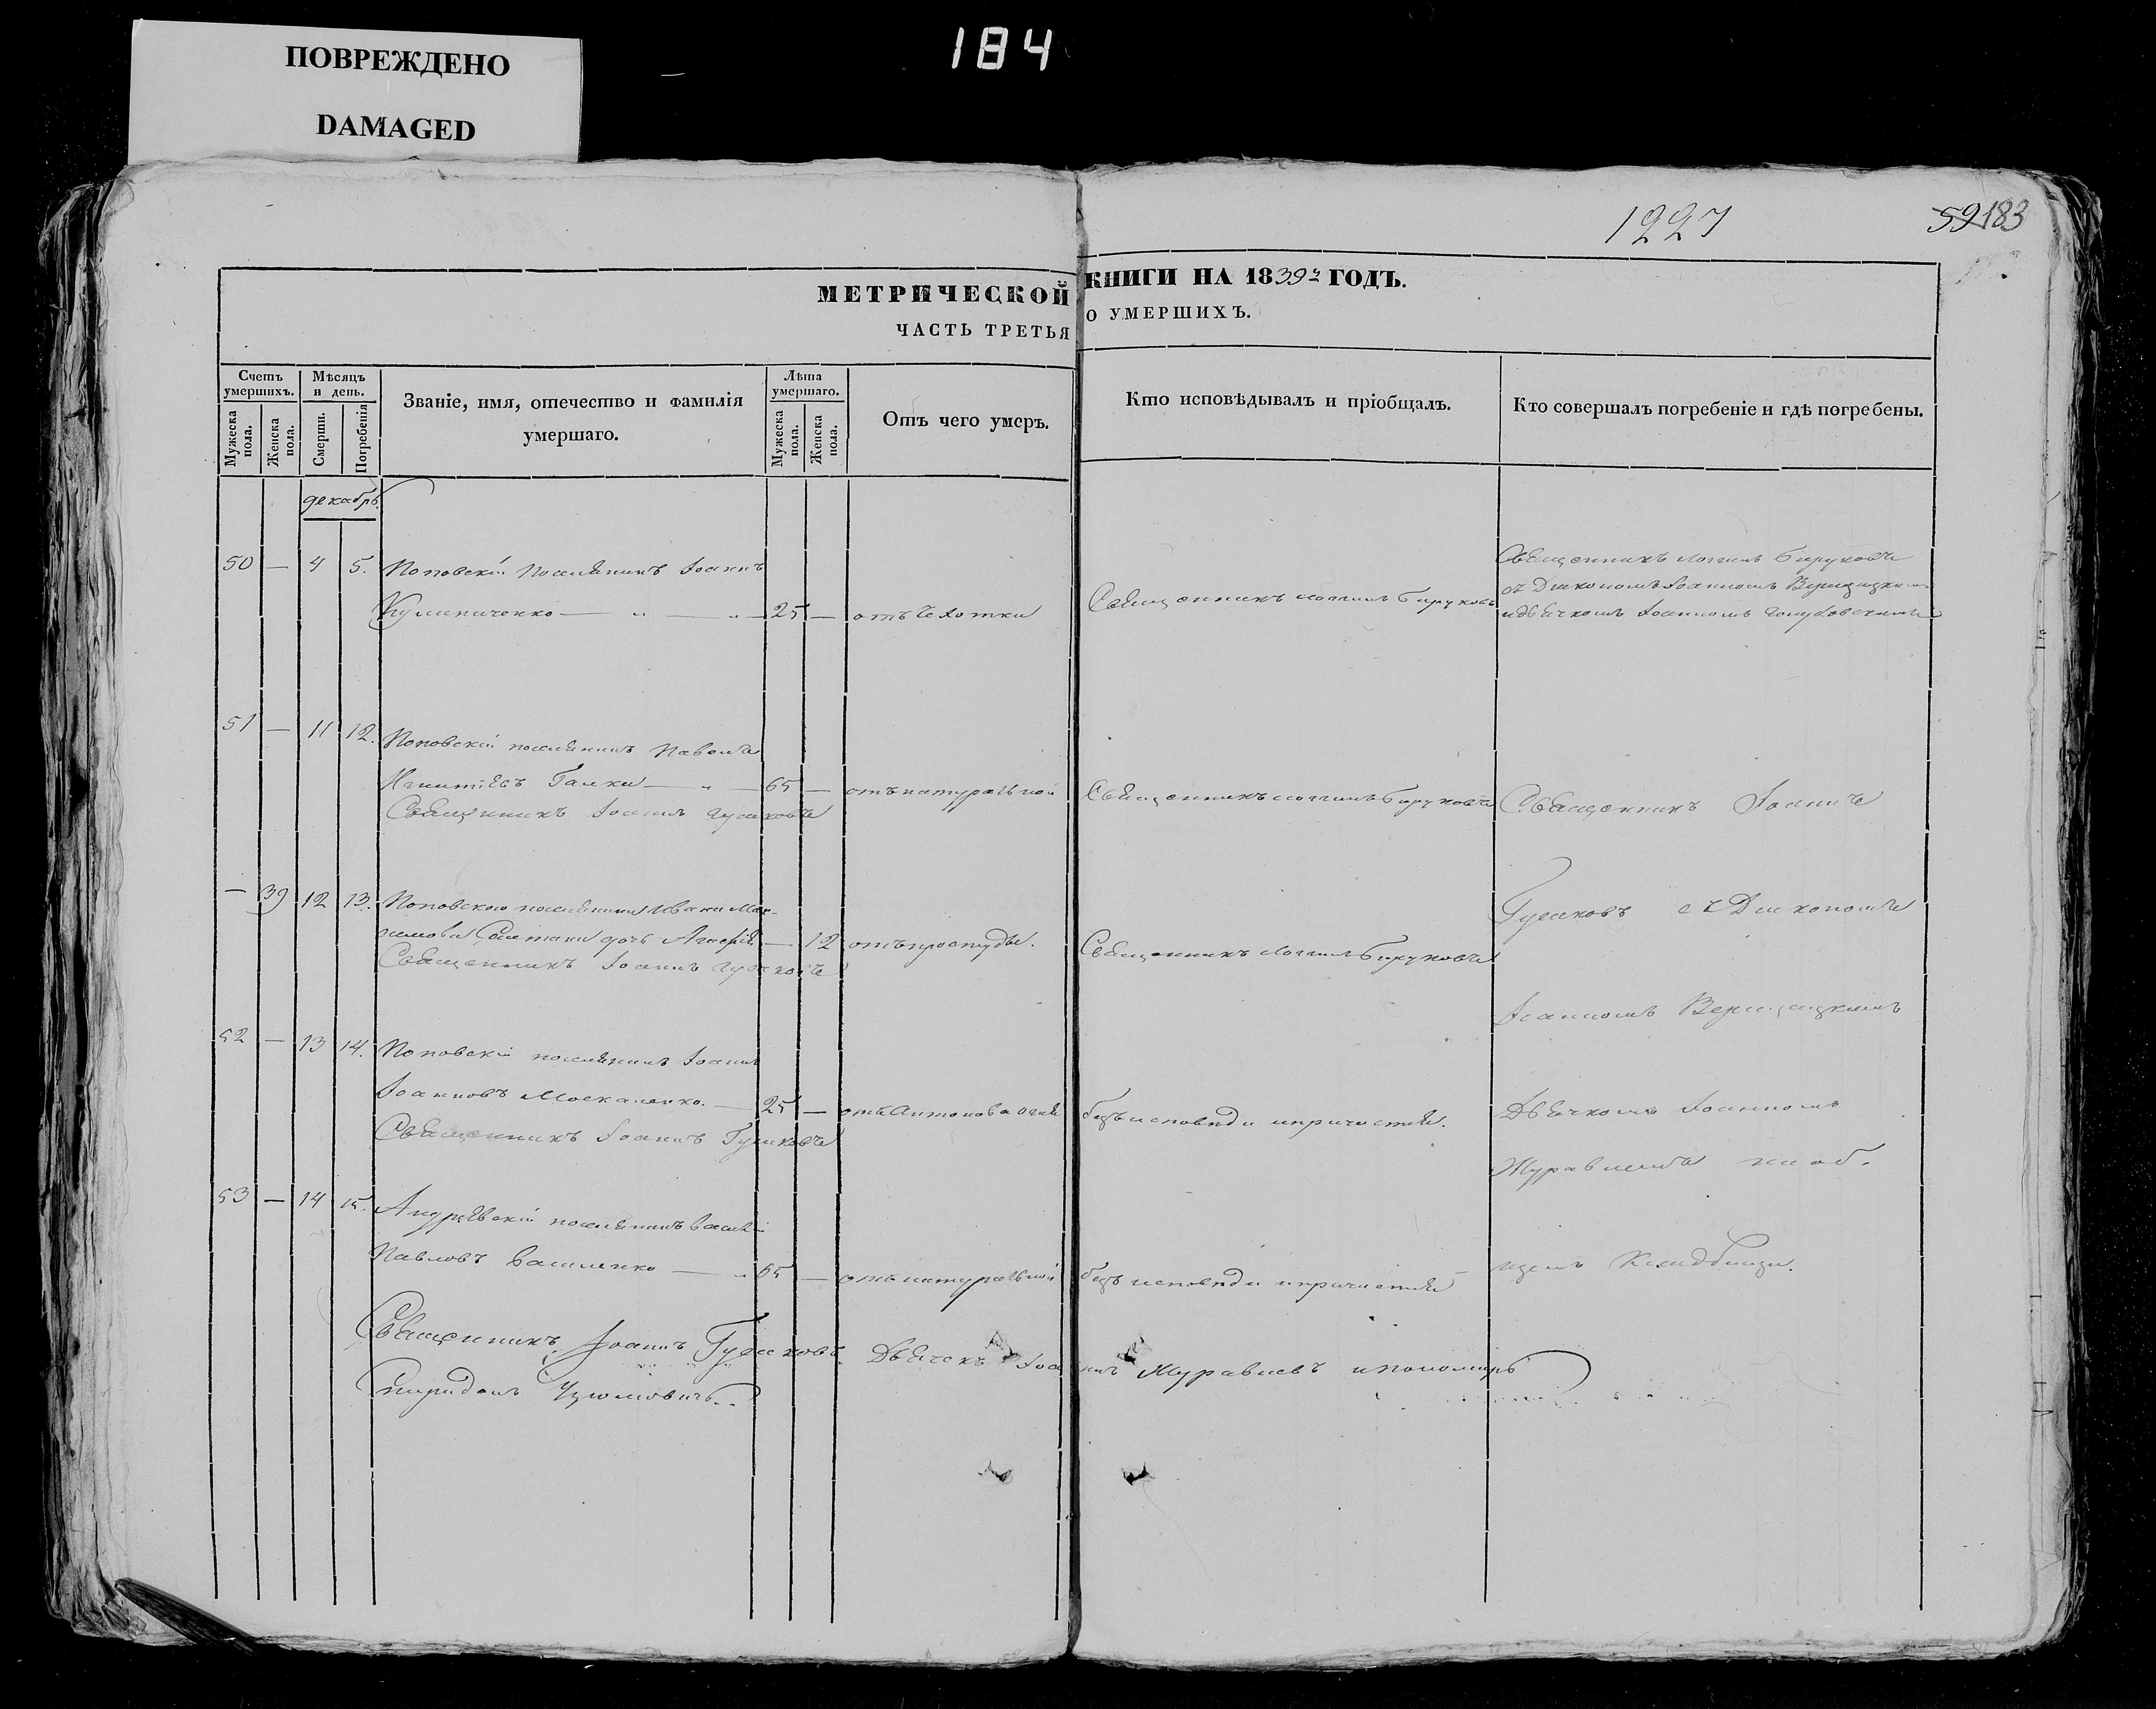 ПОВРЕЖДЕНО
DAMAGED
184
1227
59 183
МЕТРИЧЕСКОЙ КНИГИ НА 1839й ГОДЪ.
ЧАСТЬ ТРЕТЬЯ О УМЕРШИХЪ.
Счетъ умершихъ.
Мужеска пола.
Женска пола.
Мѣсяцъ и день.
Смерти.
Погребенія
Званіе, имя, отечество и фамилія умершаго.
Лѣта умершаго.
Мужеска пола.
Женска пола.
Отъ чего умеръ.
Кто исповѣдывалъ и пріобщалъ.
Кто совершалъ погребеніе и гдѣ погребены.
декабрь
50 — 4 5. Поповскій поселянинъ Іоаннъ
— 25 — отъ чехотки
Священникъ Логгинъ Бируковъ
Священникъ Логгинъ Бируковъ
съ Диакономъ Іоанномъ Верещацкимъ
и дьячкомъ Іоанномъ
51 — 11 12. Поповскій поселянинъ Павелъ
Игнатіевъ Галка — 65 — отъ натуральной
Священникъ Іоаннъ Гусаковъ
Священникъ Логгинъ Бируковъ
Священникъ Іоаннъ
— 39 12 13. Поповскаго поселянина Ивана
дочь — 12 отъ простуды.
Священникъ Іоаннъ Гусаковъ
Священникъ Логгинъ Бируковъ
Гусаковъ съ Диакономъ
Іоанномъ Верещацкимъ
52 — 13 14. Поповскій поселянинъ Іоаннъ
Іоанновъ Москаленко. — 25 — отъ Антонова огня
Священникъ Іоаннъ Гусаковъ
безъ исповѣди и причастія.
Дьячкомъ Іоанномъ
Журавлевымъ на об.
53 — 14 15. Андреевскій поселянинъ Василій
Павловъ Василенко — 65 — отъ натуральной
безъ исповѣди и причастія
щемъ Кладбищи.
Священникъ Іоаннъ Гусаковъ Дьячекъ Іоаннъ Журавлевъ и пономарь
Спиридонъ